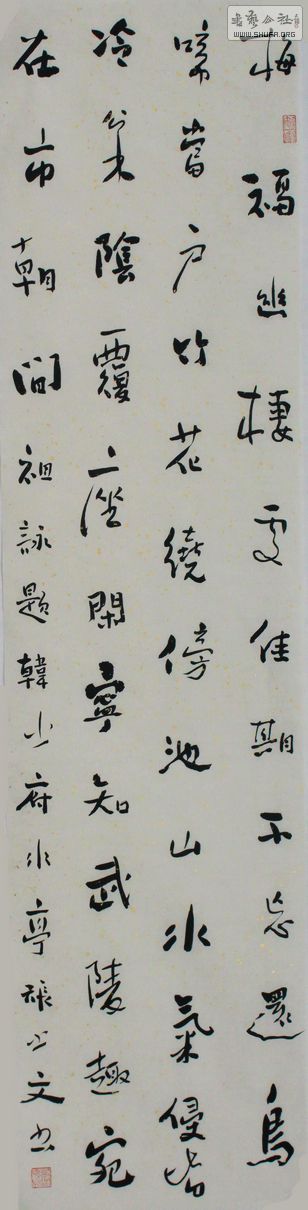 書藝公社
WWW.SHUFA.ORG
梅福幽棲處佳期不忘還鳥
啼當戶竹花繞傍池山水氣侵階
冷枀陰覆座閑寧知武陵趣宛
在市朝間祖詠題韓少府水亭張文书